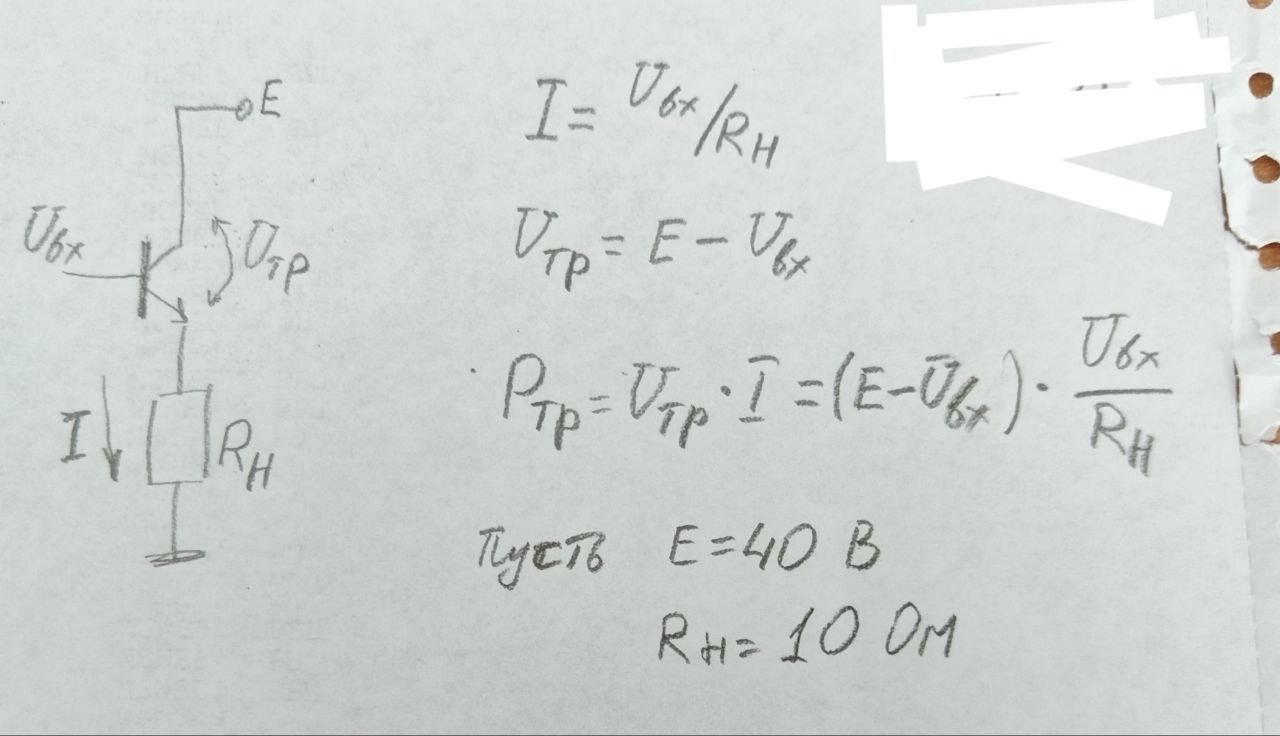 E
Uвх
Uтр
I
Rн
I = Uвх/Rн
Uтр = E - Uвх
Pтр = Uтр · I = (E - Uвх) · Uвх/Rн
Пусть E = 40 В
Rн = 10 Ом